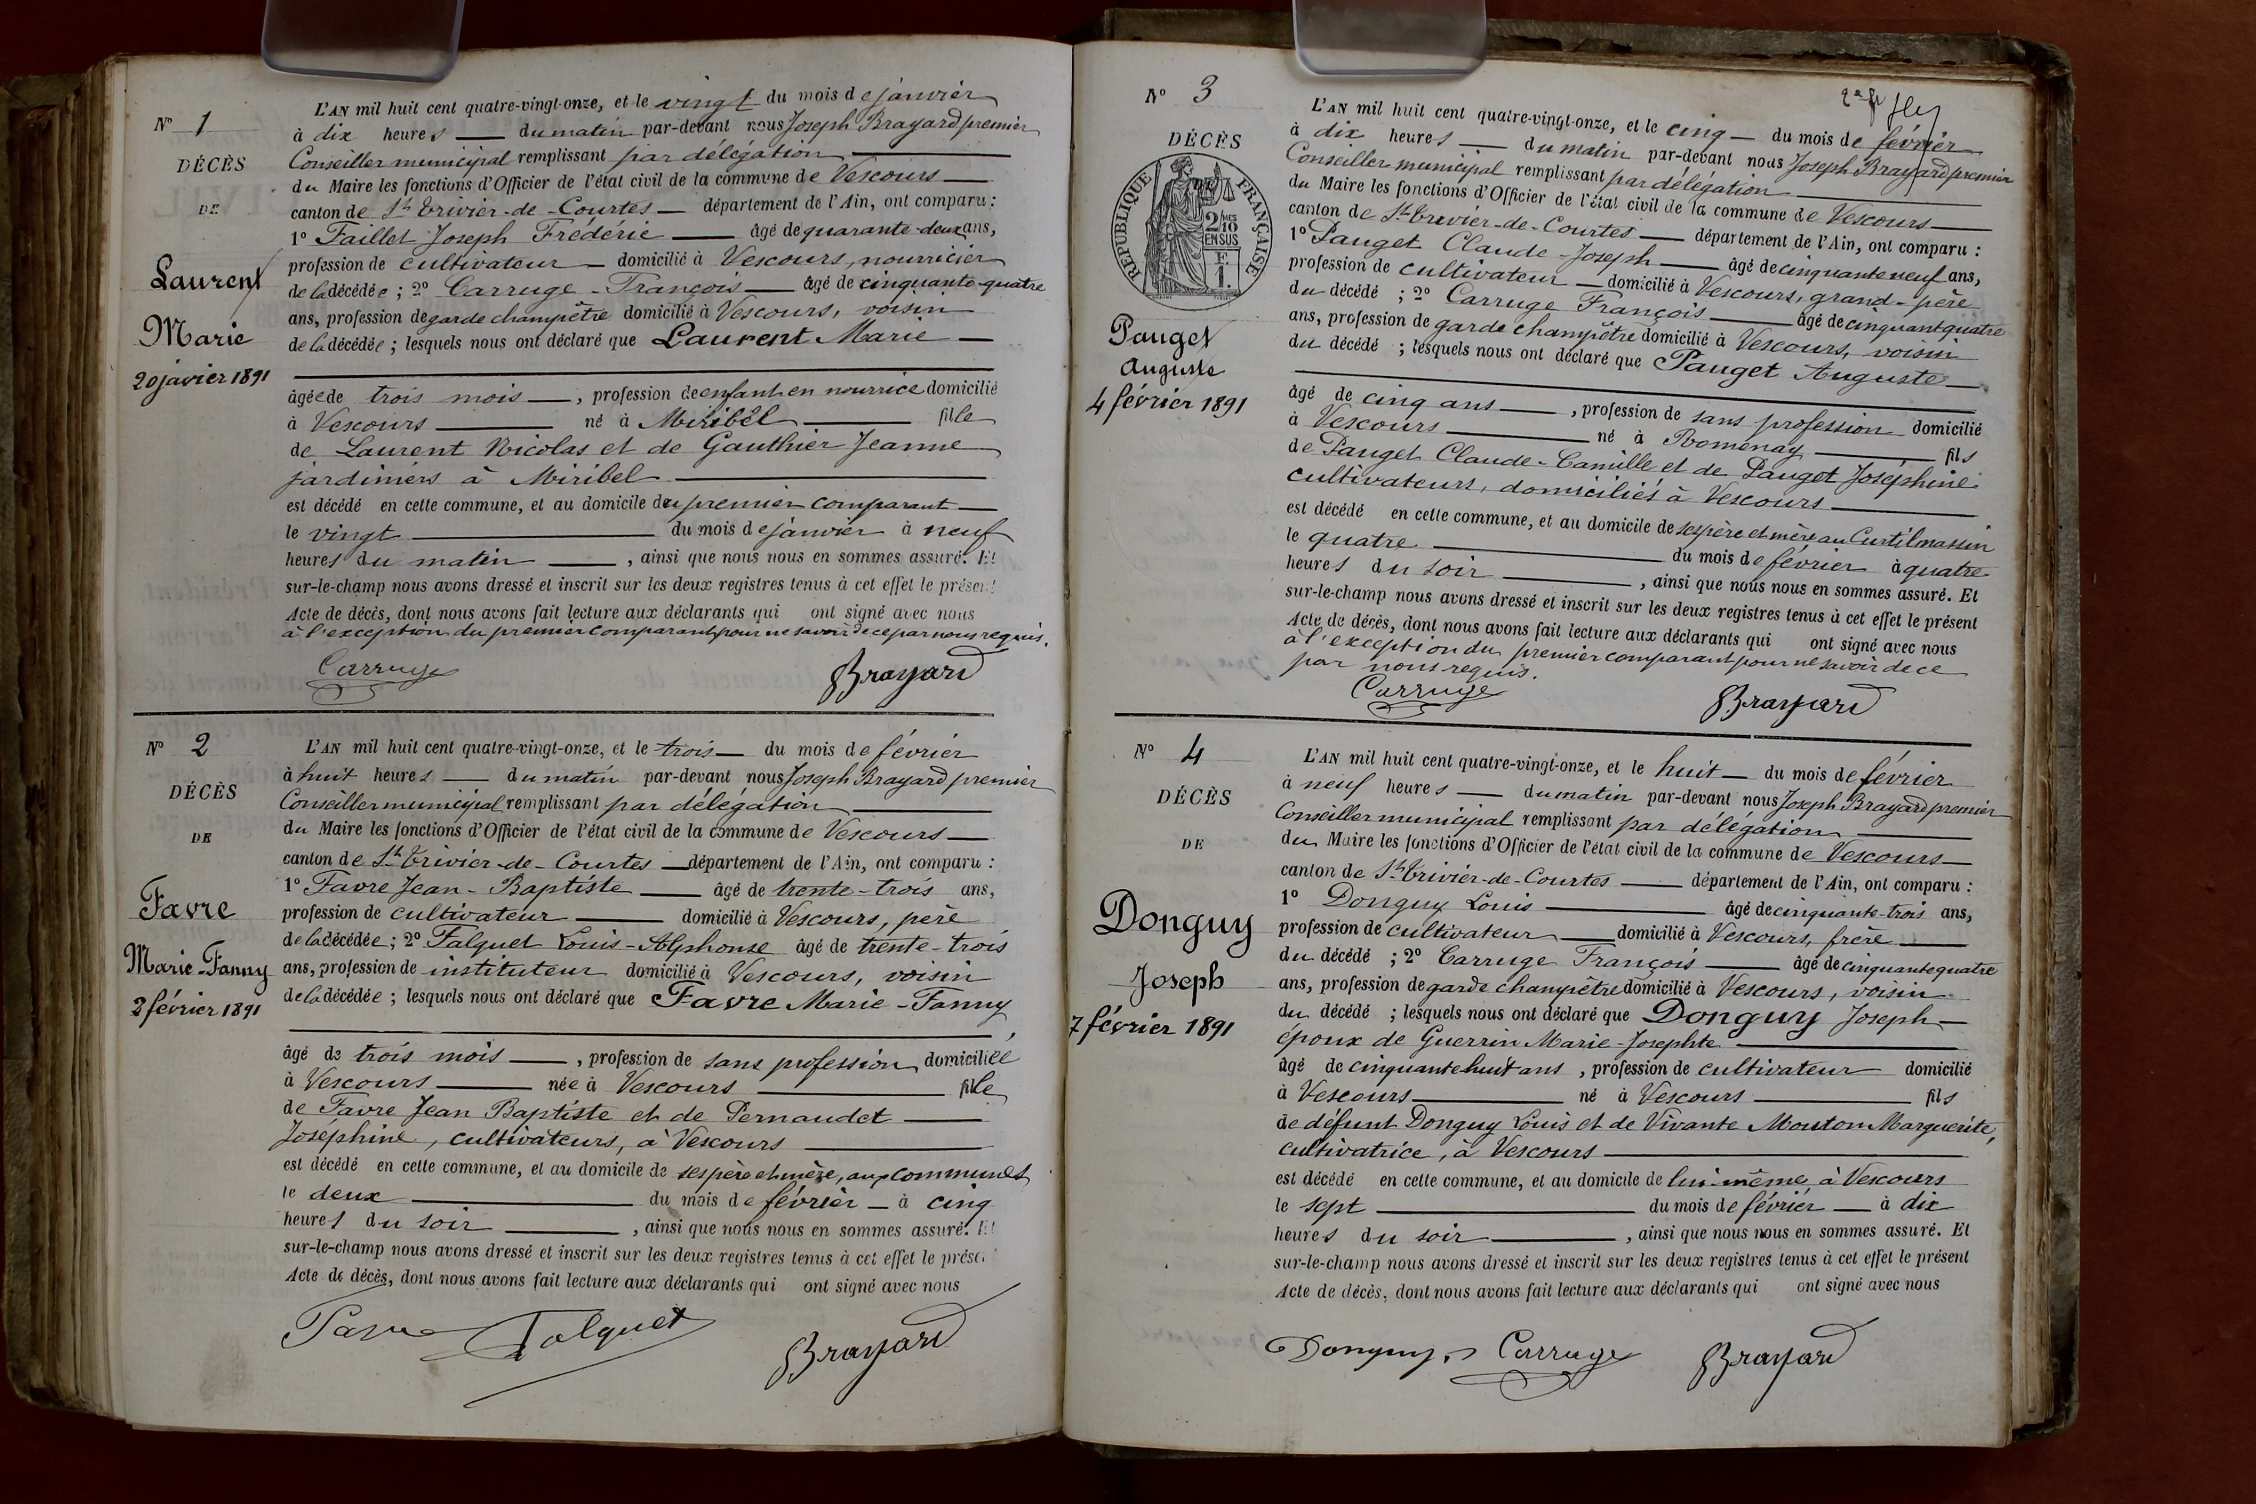 N° 1
DÉCÈS
DE
Laurent
Marie
20 javier 1891
L'AN mil huit cent quatre-vingt-onze, et le vingt du mois de janvier
à dix heures du matin par-devant nous Joseph Brayard premier
Conseiller municipal remplissant par délégation
du Maire les fonctions d'Officier de l'état civil de la commune de Vescours
canton de St. Trivier-de-Courtes département de l'Ain, ont comparu :
1° Faillet Joseph Fréderic âgé de quarante-deux ans,
profession de cultivateur domicilié à Vescours, nourricier
de la décédée ; 2° Carruge François âgé de cinquante-quatre
ans, profession de garde champêtre domicilié à Vescours, voisin
de la décédée ; lesquels nous ont déclaré que Laurent Marie
âgée de trois mois, profession de enfant en nourrice domicilié
à Vescours né à Miribel fille
de Laurent Nicolas et de Gauthier Jeanne
jardiniers à Miribel
est décédé en cette commune, et au domicile du premier comparant
le vingt du mois de janvier à neuf
heures du matin, ainsi que nous nous en sommes assuré. Et
sur-le-champ nous avons dressé et inscrit sur les deux registres tenus à cet effet le présent
Acte de décès, dont nous avons fait lecture aux déclarants qui ont signé avec nous
à l'exception du premier comparant pour ne savoir de ce par nous requis.
Carruge Brayard
N° 2
DÉCÈS
DE
Favre
Marie-Fanny
2 février 1891
L'AN mil huit cent quatre-vingt-onze, et le trois du mois de février
à huit heures du matin par-devant nous Joseph Brayard premier
Conseiller municipal remplissant par délégation
du Maire les fonctions d'Officier de l'état civil de la commune de Vescours
canton de St. Trivier-de-Courtes département de l'Ain, ont comparu :
1° Favre Jean-Baptiste âgé de trente-trois ans,
profession de cultivateur domicilié à Vescours, père
de la décédée ; 2° Falquet Louis-Alphonse âgé de trente-trois
ans, profession de instituteur domicilié à Vescours, voisin
de la décédée ; lesquels nous ont déclaré que Favre Marie-Fanny
âgé de trois mois, profession de sans profession domiciliée
à Vescours née à Vescours fille
de Favre Jean Baptiste et de Pernaudet
Joséphine, cultivateurs, à Vescours
est décédé en cette commune, et au domicile de ses père et mère, aux communes
le deux du mois de février à cinq
heures du soir, ainsi que nous nous en sommes assuré. Et
sur-le-champ nous avons dressé et inscrit sur les deux registres tenus à cet effet le présent
Acte de décès, dont nous avons fait lecture aux déclarants qui ont signé avec nous
Favre Falquet Brayard
N° 3
DÉCÈS
RÉPUBLIQUE FRANÇAISE
2/10 MES
EN SUS
F.
1.
Pauget
Auguste
4 février 1891
L'AN mil huit cent quatre-vingt-onze, et le cinq du mois de février
à dix heures du matin par-devant nous Joseph Brayard premier
Conseiller municipal remplissant par délégation
du Maire les fonctions d'Officier de l'état civil de la commune de Vescours
canton de St. Trivier-de-Courtes département de l'Ain, ont comparu :
1° Pauget Claude-Joseph âgé de cinquante neuf ans,
profession de cultivateur domicilié à Vescours, grand-père
du décédé ; 2° Carruge François âgé de cinquantquatre
ans, profession de garde champêtre domicilié à Vescours, voisin
du décédé ; lesquels nous ont déclaré que Pauget Auguste
âgé de cinq ans, profession de sans profession domicilié
à Vescours né à Romenay fils
de Pauget Claude-Camille et de Pauget Joséphine
cultivateurs, domiciliés à Vescours
est décédé en cette commune, et au domicile de ses père et mère au Curtilmassin
le quatre du mois de février à quatre
heures du soir, ainsi que nous nous en sommes assuré. Et
sur-le-champ nous avons dressé et inscrit sur les deux registres tenus à cet effet le présent
Acte de décès, dont nous avons fait lecture aux déclarants qui ont signé avec nous
à l'exception du premier comparant pour ne savoir de ce
par nous requis.
Carruge Brayard
N° 4
DÉCÈS
DE
Donguy
Joseph
7 février 1891
L'AN mil huit cent quatre-vingt-onze, et le huit du mois de février
à neuf heures du matin par-devant nous Joseph Brayard premier
Conseiller municipal remplissant par délégation
du Maire les fonctions d'Officier de l'état civil de la commune de Vescours
canton de St. Trivier-de-Courtes département de l'Ain, ont comparu :
1° Donguy Louis âgé de cinquante-trois ans,
profession de cultivateur domicilié à Vescours, frère
du décédé ; 2° Carruge François âgé de cinquantequatre
ans, profession de garde champêtre domicilié à Vescours, voisin
du décédé ; lesquels nous ont déclaré que Donguy Joseph
époux de Guerrin Marie-Josephte
âgé de cinquante huit ans, profession de cultivateur domicilié
à Vescours né à Vescours fils
de défunt Donguy Louis et de Vivante Mouton Marguerite,
cultivatrice, à Vescours
est décédé en cette commune, et au domicile de lui-même à Vescours
le sept du mois de février à dix
heures du soir, ainsi que nous nous en sommes assuré. Et
sur-le-champ nous avons dressé et inscrit sur les deux registres tenus à cet effet le présent
Acte de décès, dont nous avons fait lecture aux déclarants qui ont signé avec nous
Donguy Carruge Brayard